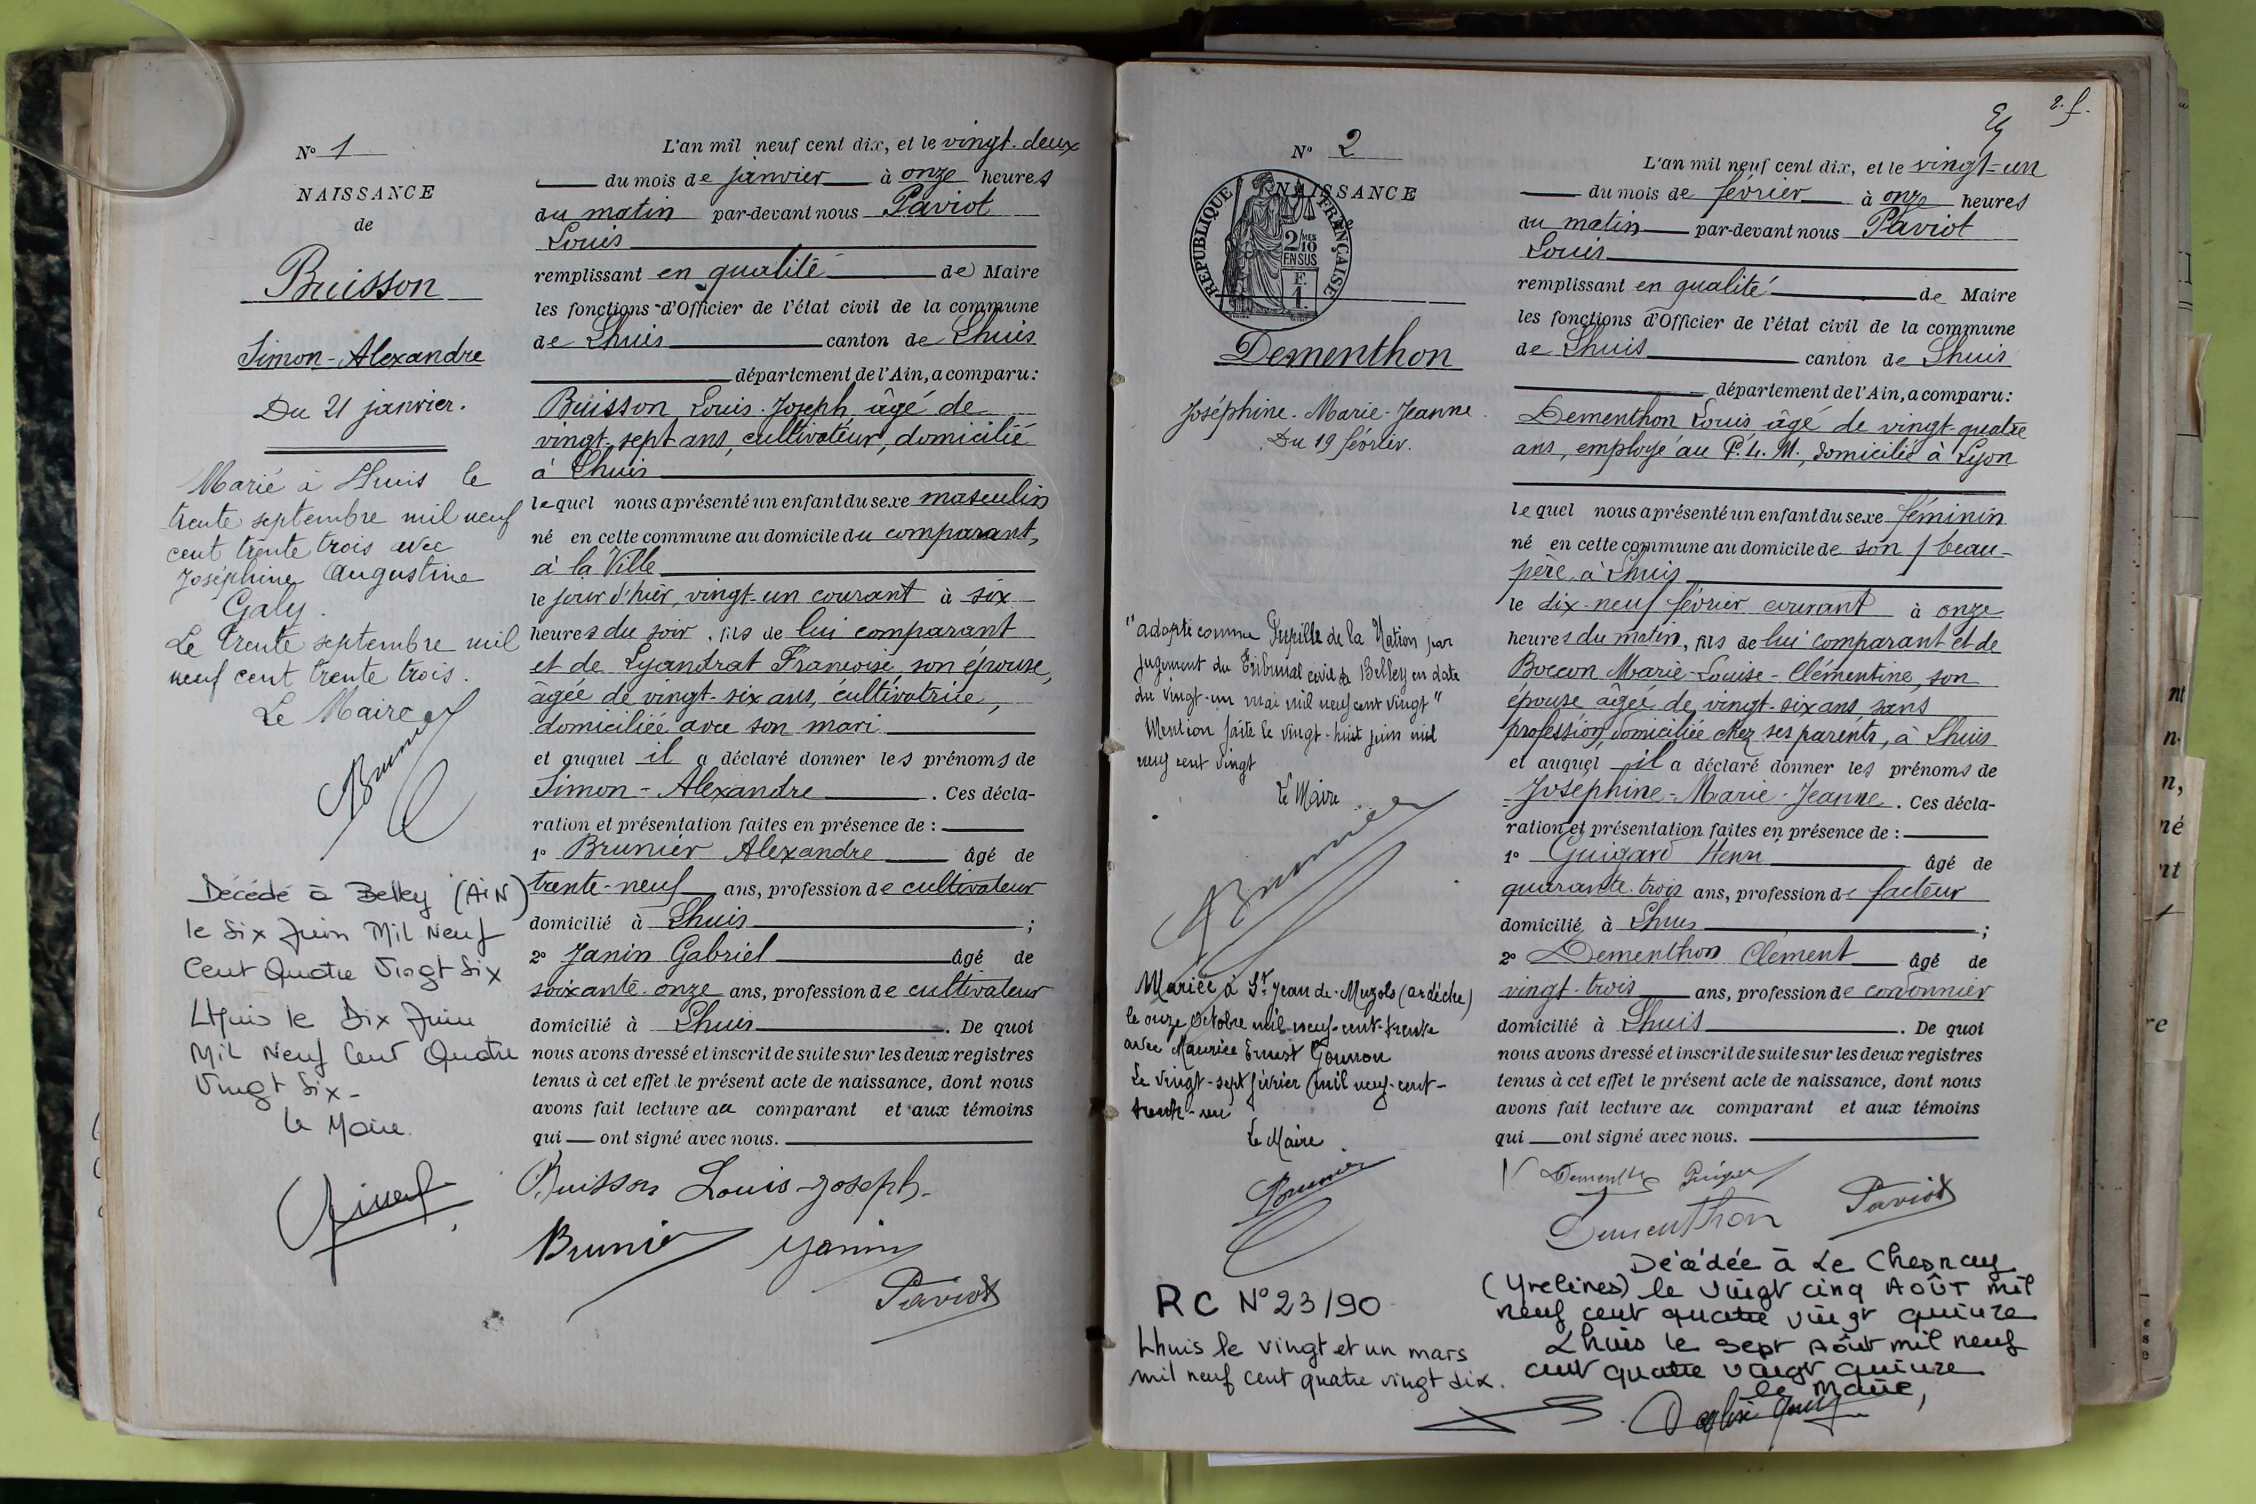 N° 1
NAISSANCE
de
Buisson
Simon-Alexandre
Du 21 janvier.
Marié à Lhuis le
trente septembre mil neuf
cent trente trois avec
Joséphine Augustine
Galy.
Le trente septembre mil
neuf cent trente trois.
Le Maire
Brunier
Décédé à Belley (AIN)
le Six Juin Mil Neuf
Cent Quatre Vingt Six
Lhuis le Dix Juin
Mil Neuf Cent Quatre
Vingt Six-
Le Maire
L'an mil neuf cent dix, et le vingt-deux
du mois de janvier à onze heures
du matin par-devant nous Paviot
Louis
remplissant en qualité de Maire
les fonctions d'Officier de l'état civil de la commune
de Lhuis canton de Lhuis
département de l'Ain, a comparu:
Buisson Louis-Joseph, âgé de
vingt-sept ans, cultivateur, domicilié
à Lhuis
lequel nous a présenté un enfant du sexe masculin
né en cette commune au domicile du comparant,
à la Ville
le jour d'hier, vingt-un courant à six
heures du soir, fils de lui comparant
et de Lyandrat Françoise, son épouse,
âgée de vingt-six ans, cultivatrice,
domiciliée avec son mari
et auquel il a déclaré donner les prénoms de
Simon-Alexandre. Ces décla-
ration et présentation faites en présence de :
1° Brunier Alexandre âgé de
trente-neuf ans, profession de cultivateur
domicilié à Lhuis ;
2° Janin Gabriel âgé de
soixante-onze ans, profession de cultivateur
domicilié à Lhuis. De quoi
nous avons dressé et inscrit de suite sur les deux registres
tenus à cet effet le présent acte de naissance, dont nous
avons fait lecture au comparant et aux témoins
qui ont signé avec nous.
Buisson Louis-Joseph-
Brunier Janin
Paviot
2. f.
N° 2
NAISSANCE
RÉPUBLIQUE FRANÇAISE
2/10 MES
EN SUS
F.
1
Dementhon
Joséphine-Marie-Jeanne.
Du 19 février.
"adopté comme Pupille de la Nation par
jugement du Tribunal civil de Belley en date
du vingt-un mai mil neuf cent vingt"
Mention faite le vingt-huit juin mil
neuf cent vingt
Le Maire
Brunier
Mariée à St Jean-de-Muzols (Ardèche)
le onze Octobre mil-neuf-cent-trente
avec Maurice Ernest Gounon
Le vingt-sept février mil neuf-cent-
trente-un
Le Maire
Brunier
RC N° 23/90
Lhuis le vingt et un mars
mil neuf cent quatre vingt dix.
L'an mil neuf cent dix, et le vingt-un
du mois de février à onze heures
du matin par-devant nous Paviot
Louis
remplissant en qualité de Maire
les fonctions d'Officier de l'état civil de la commune
de Lhuis canton de Lhuis
département de l'Ain, a comparu:
Dementhon Louis âgé de vingt-quatre
ans, employé au P.L.M., domicilié à Lyon
lequel nous a présenté un enfant du sexe féminin
né en cette commune au domicile de son beau-
père, à Lhuis
le dix-neuf février courant à onze
heures du matin, fils de lui comparant et de
Boccon Marie-Louise-Clémentine, son
épouse âgée de vingt-six ans sans
profession, domiciliée chez ses parents, à Lhuis
et auquel il a déclaré donner les prénoms de
Joséphine-Marie-Jeanne. Ces décla-
ration et présentation faites en présence de :
1° Guigard Henri âgé de
quarante-trois ans, profession de facteur
domicilié à Lhuis ;
2° Dementhon Clément âgé de
vingt-trois ans, profession de cordonnier
domicilié à Lhuis. De quoi
nous avons dressé et inscrit de suite sur les deux registres
tenus à cet effet le présent acte de naissance, dont nous
avons fait lecture au comparant et aux témoins
qui ont signé avec nous.
Dementhon
Dementhon Paviot
Décédée à Le Chesnay
(Yvelines) le vingt cinq Août mil
neuf cent quatre vingt quinze
Lhuis le sept Août mil neuf
cent quatre vingt quinze
le Maire,